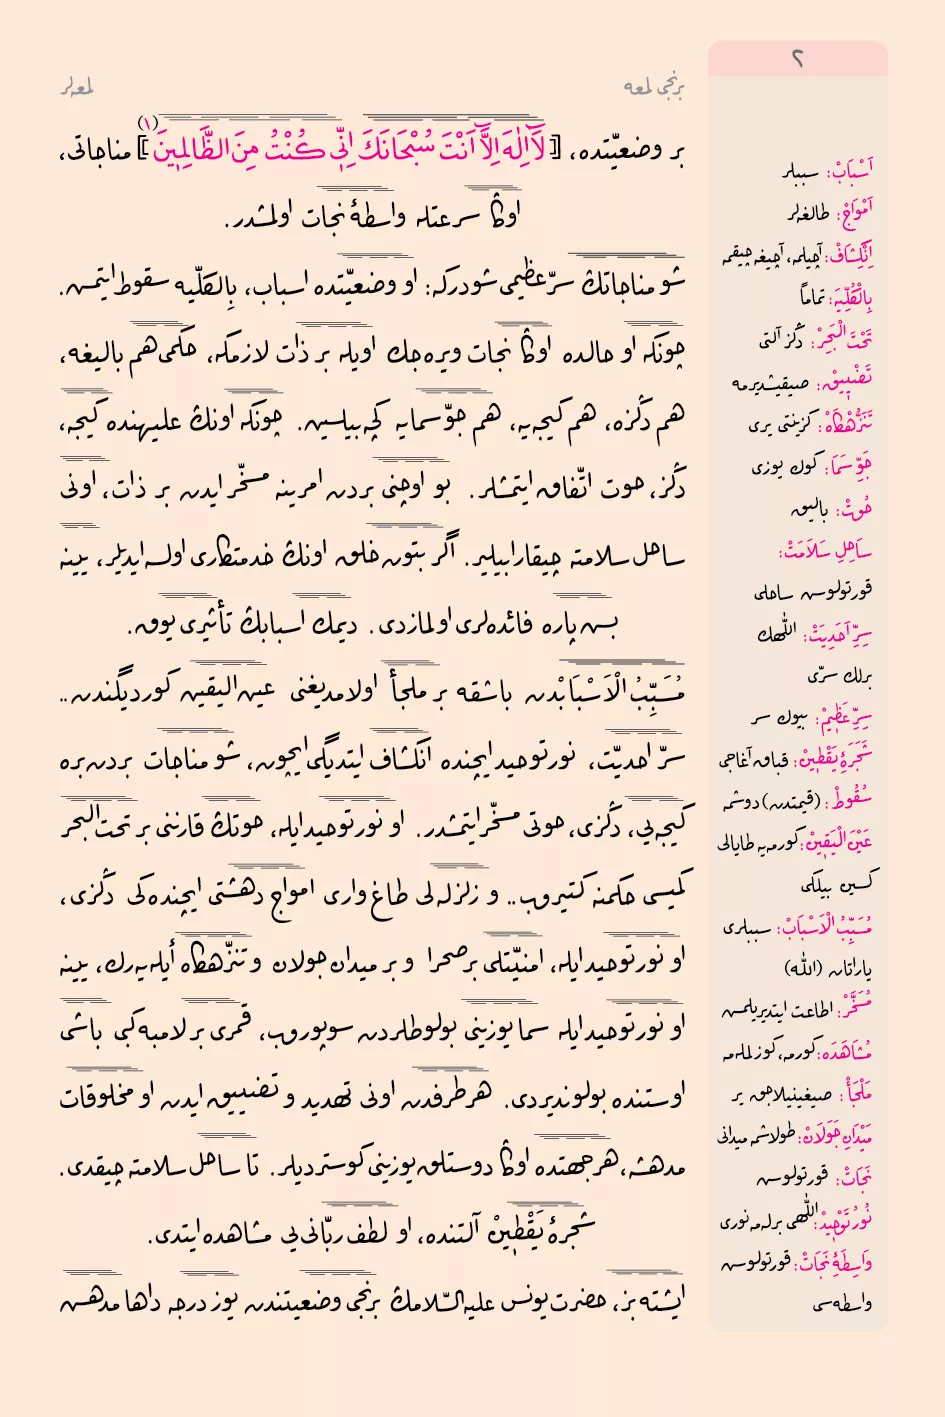 ٢
برنجى لمعه
لمعه‌لر
بر وضعيّتده، [لَٓا اِلٰهَ اِلَّٓا اَنْتَ سُبْحَانَكَ اِنِّى كُنْتُ مِنَ الظَّالِمِينَ](١) مناجاتى،
اوڭا سرعتله واسطهٔ نجات اولمشدر.
شو مناجاتڭ سرّ عظيمى شودركه: او وضعيّتده اسباب، بِالكلّيه سقوط ايتمس.
چونكه او حالده اوڭا نجات ويره‌جك اويله بر ذات لازمكه، حكمى هم باليغه،
هم دڭزه، هم كيجه‌يه، هم جوّ سمايه كچه‌بيلسين. چونكه اونڭ عليهنده كيجه،
دڭز، حوت اتّفاق ايتمشلر. بو اوچنى بردن امرينه مسخّر ايدن بر ذات، اونى
ساحل سلامته چيقارابيلير. اگر بتون خلق اونڭ خدمتكارى اولسه ايديلر، يينه
بش پاره فائده‌لرى اولمازدى. ديمك اسبابڭ تأثيرى يوق.
مُسَبِّبُ الْاَسْبَابْدن باشقه بر ملجأ اولامديغنى عين اليقين كورديگندن..
سرّ احديّت، نور توحيد ايچنده انكشاف ايتديگى ايچون، شو مناجات بردن بره
كيجه‌يى، دڭزى، حوتى مسخّر ايتمشدر. او نور توحيد ايله، حوتڭ قارننى بر تحت البحر
كميسى حكمنه كتيروب.. و زلزله‌لى طاغ‌وارى امواج دهشتى ايچنده‌كى دڭزى،
او نور توحيد ايله، امنيّتلى بر صحرا و بر ميدان جولان و تنزّهگاه أيله‌يه‌رك، يينه
او نور توحيد ايله سما يوزينى بولوطلردن سوپوروب، قمرى بر لامبه كبى باشى
اوستنده بولونديردى. هر طرفدن اونى تهديد و تضييق ايدن او مخلوقات
مدهشه، هر جهتده اوڭا دوستلق يوزينى كوسترديلر. تا ساحل سلامته چيقدى.
شجرهٔ يَقْطِينْ آلتنده، او لطف ربّانى‌يى مشاهده ايتدى.
ايشته بز، حضرت يونس عليه السّلامڭ برنجى وضعيتندن يوز درجه داها مدهش
اَسْبَابْ: سببلر
اَمْوَاجْ: طالغه‌لر
اِنْكِشَافْ: آچيلمه، آچيغه چيقمه
بِالْكُلِّيَه: تمامًا
تَحْتَ الْبَحِرْ: دڭز آلتى
تَضْيِيقْ: صيقيشديرمه
تَنَزُّهْگَاهْ: كزينتى يرى
جَوِّ سَمَا: كوك يوزى
حُوتْ: باليق
سَاحِلِ سَلَامَتْ:
قورتولوش ساحلى
سِرِّ اَحَدِيَتْ: اللّٰهڭ
برلك سرّى
سِرِّ عَظِيمْ: بيوك سر
شَجَرَۀِ يَقْطِينْ: قباق آغاجى
سُقُوطْ: (قيمتدن) دوشمه
عَيْنَ الْيَقِينْ: كورمه‌يه طايالى
كسين بيلكى
مُسَبِّبُ الْاَسْبَابْ: سببلرى
ياراتان (اللّٰه)
مُسَخَّرْ: اطاعت ايتديريلمش
مُشَاهَدَه: كورمه، كوزلمله‌مه
مَلْجَأْ: صيغينيلاجق ير
مَيْدَانِ جَوَلَانْ: طولاشمه ميدانى
نَجَاتْ: قورتولوش
نُورُ تَوْحِيدْ: اللّٰهى برله‌مه نورى
وَاسِطَۀِ نَجَاتْ: قورتولوش
واسطه‌سى